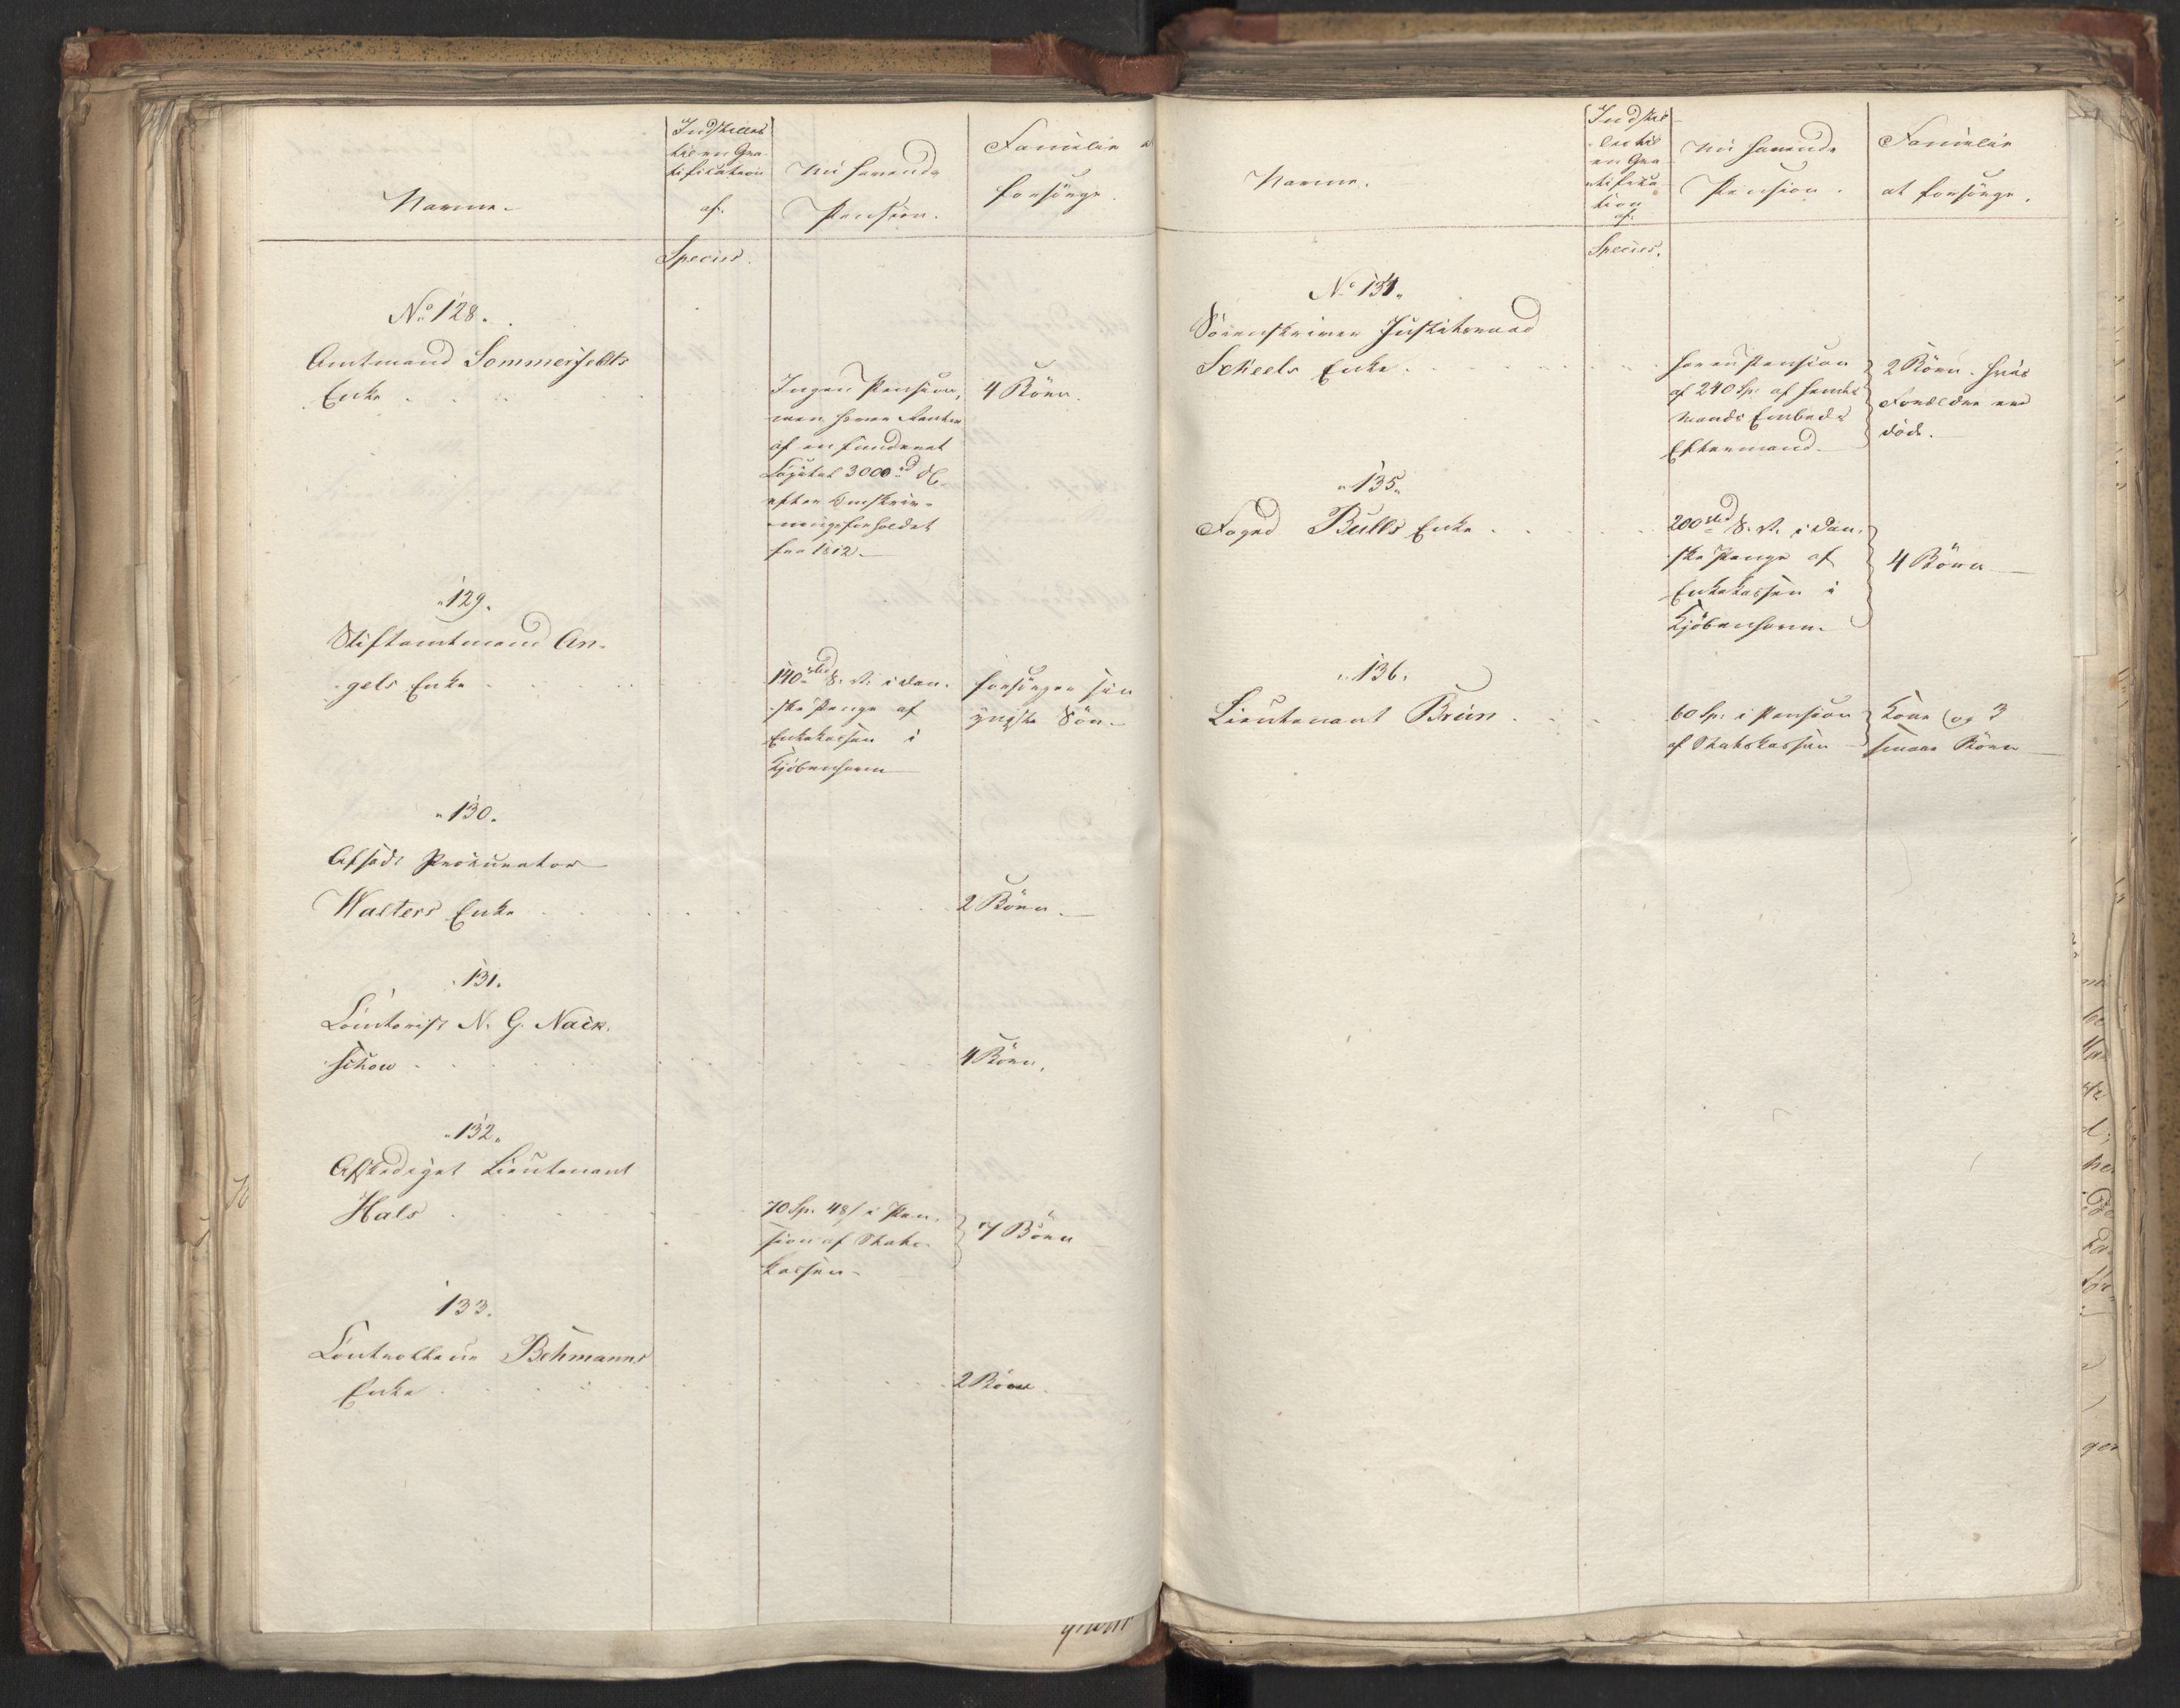 Navne.
Indstillet
til en Gra-
tifikation
af.
Nu havende
Pension.
Familie a
forsörge.
Species.
No 128.
Amtmand Sommerfeldts
Enke
Ingen Pension,
men haver Renten
af en funderet
Capital 3000 rd
efter Omskriv-
ningsforholdet
fra 1812.
4 Börn.
" 129.
Stiftamtmand An-
gels Enke
140 rbd S. V. i dan-
ske Penge af
Enkekassen i
Kjöbenhavn
forsörger sin
yngste Sön.
" 130.
Afsadt Prokurator
Walters Enke
2 Börn.
" 131.
Contorist N. G. Nack-
schow
4 Börn.
" 132.
Afskediget Lieutenant
Hals
70 Sp. 48 s i Pen-
sion af Stats-
kassen.
7 Börn
133.
Controlleur Behmanns
Enke
2 Börn.
Navne.
Indstil-
let til
en Gra-
tifika-
tion
af.
Nu havende
Pension.
Familie
at forsörge.
Species.
No 134.
Sörenskriver Justitsraad
Scheels Enke
haver Pension
af 240 Sp. af hendes
Mands Embeds
Eftermand.
2 Börn. hvis
Forældre ere
döde.
" 135.
Foged Bulls Enke
200 rbd S. V. i dan-
ske Penge af
Enkekassen i
Kjöbenhavn.
4 Börn
" 136.
Lieutenant Brun
60 Sp. i Pension
af Statskassen
Kone og 3
smaae Börn